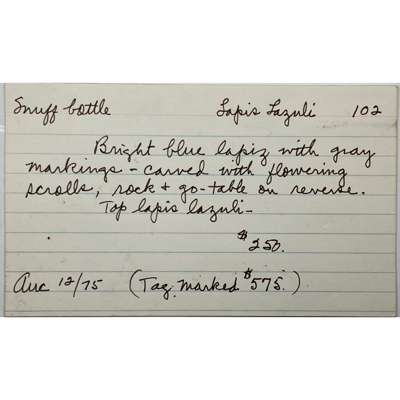 Snuff bottle Lapis Lazuli 102
Bright blue lapiz with gray
markings - carved with flowering
scrolls, rock + go-table on reverse.
Top lapis lazuli -
$250.
Auc 12/75 (Tag marked $575.)